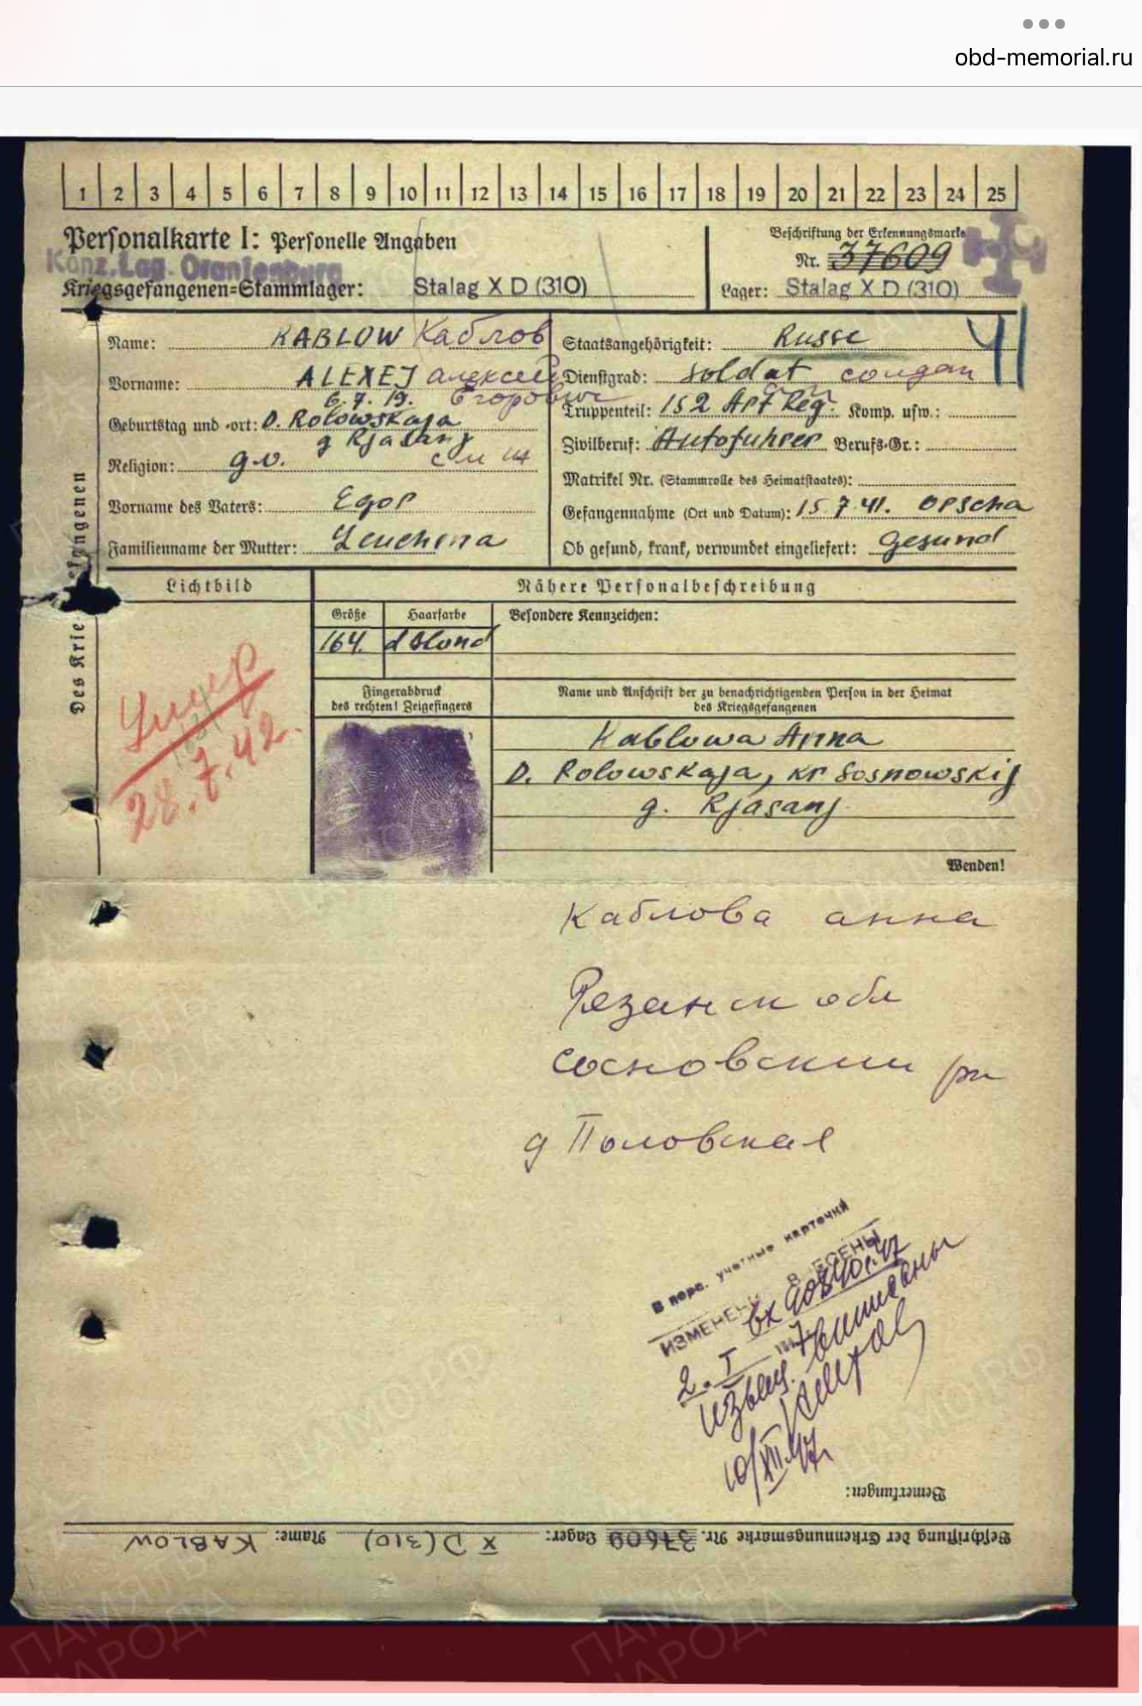 obd-memorial.ru
1 2 3 4 5 6 7 8 9 10 11 12 13 14 15 16 17 18 19 20 21 22 23 24 25
Personalkarte I: Personelle Angaben
Beschriftung der Erkennungsmarke
Nr. 37609
Konz.Lag. Oranienburg
Kriegsgefangenen=Stammlager: Stalag X D (310)
Lager: Stalag X D (310)
Des Kriegsgefangenen
Name: KABLOW Каблов
Vorname: ALEXEJ Алексей
Егорович
Geburtstag und -ort: 6.7.19. D. Rolowskaja
g Rjasanj
Religion: g.o.
Vorname des Vaters: Egor
Familienname der Mutter:
Staatsangehörigkeit: Russe
Dienstgrad: Soldat солдат
Truppenteil: 152 Art Reg. Komp. usw.:
Zivilberuf: Autofuhrer Berufs-Gr.:
Matrikel Nr. (Stammrolle des Heimatstaates):
Gefangennahme (Ort und Datum): 15.7.41. Orscha
Ob gesund, krank, verwundet eingeliefert: Gesund
41
Lichtbild
Nähere Personalbeschreibung
Größe Haarfarbe Besondere Kennzeichen:
164. d blond
Умер
28.7.42.
Fingerabdruck
des rechten! Zeigefingers
Name und Anschrift der zu benachrichtigenden Person in der Heimat
des Kriegsgefangenen
Kablowa Anna
D. Rolowskaja, kr Sosnowskij
g. Rjasanj
Wenden!
Каблова анна
Резанск обл
Сосновский рн
д Половская
В перс. учетные карточки
ИЗМЕНЕНИЯ ВНЕСЕНЫ
2. I
10/XII 47г
Bemerkungen:
Beschriftung der Erkennungsmarke Nr. 37609 Lager: X D (310) Name: KABLOW
ПАМЯТЬ
НАРОДА
ПАМЯТЬ
НАРОДА